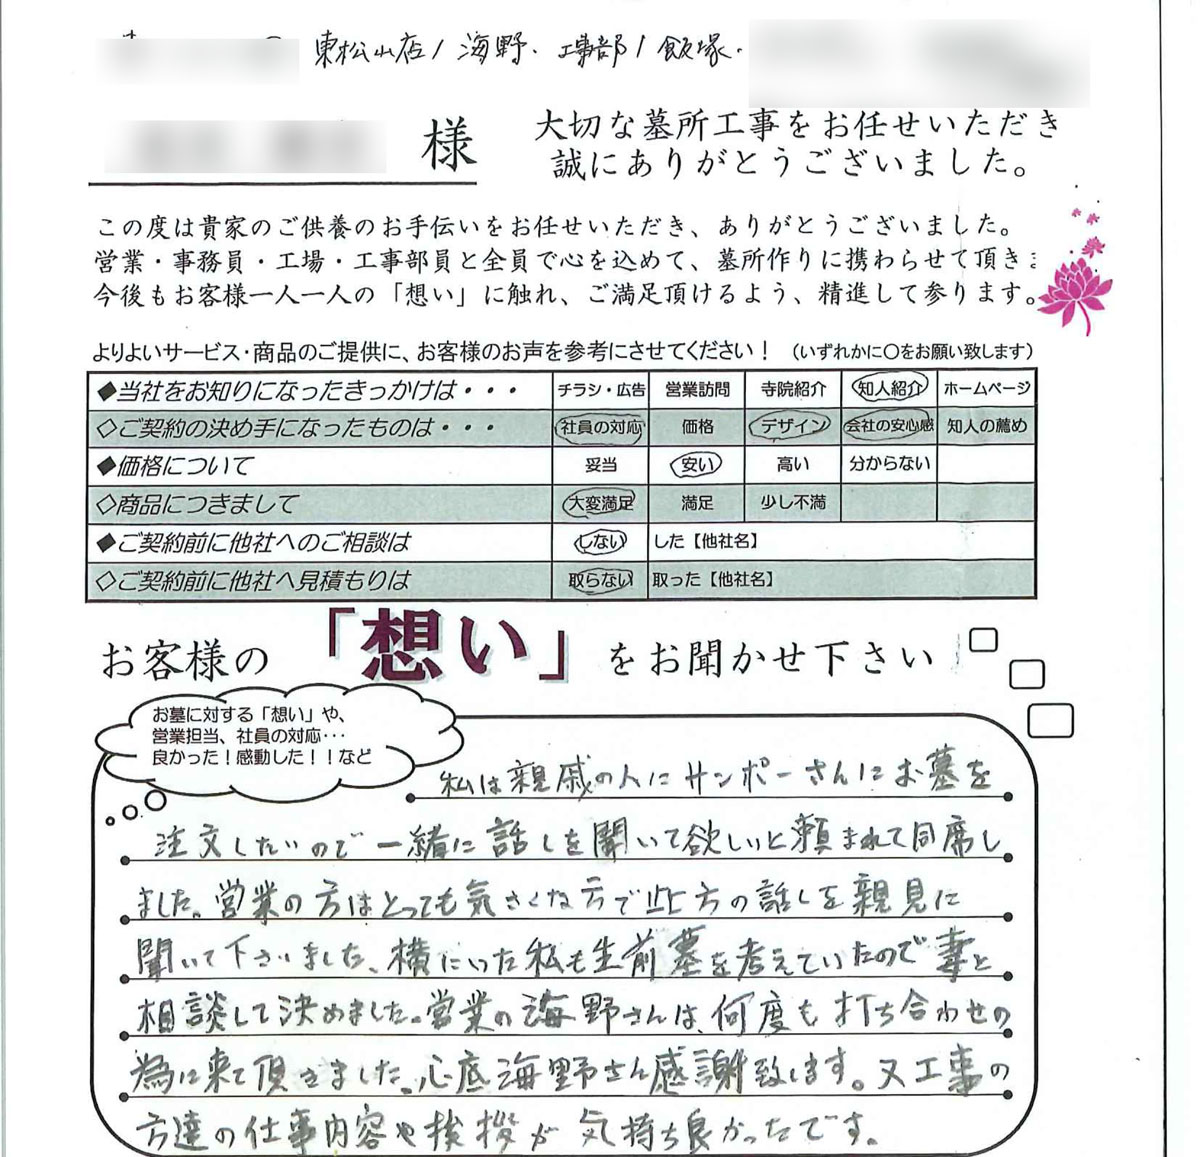 東松山店/海野・工事部/飯塚・
様
大切な墓所工事をお任せいただき
誠にありがとうございました。
この度は貴家のご供養のお手伝いをお任せいただき、ありがとうございました。
営業・事務員・工場・工事部員と全員で心を込めて、墓所作りに携わらせて頂きま
今後もお客様一人一人の「想い」に触れ、ご満足頂けるよう、精進して参ります。
よりよいサービス・商品のご提供に、お客様のお声を参考にさせてください！ （いずれかに〇をお願い致します）
◆当社をお知りになったきっかけは・・・ チラシ・広告 営業訪問 寺院紹介 知人紹介 ホームページ
◇ご契約の決め手になったものは・・・ 社員の対応 価格 デザイン 会社の安心感 知人の薦め
◆価格について 妥当 安い 高い 分からない
◇商品につきまして 大変満足 満足 少し不満
◆ご契約前に他社へのご相談は しない した【他社名】
◇ご契約前に他社へ見積もりは 取らない 取った【他社名】
お客様の「想い」をお聞かせ下さい
お墓に対する「想い」や、
営業担当、社員の対応・・・
良かった！感動した！！など
私は親戚の人にサンポーさんにお墓を
注文したいので一緒に話しを聞いて欲しいと頼まれて同席し
ました。営業の方はとっても気さくな方で此方の話しを親見に
聞いて下さいました、横にいた私も生前墓を考えていたので妻と
相談して決めました。営業の海野さんは、何度も打ち合わせの
為に来て頂きました。心底海野さん感謝致します。又工事の
方達の仕事内容や挨拶が気持ち良かったです。